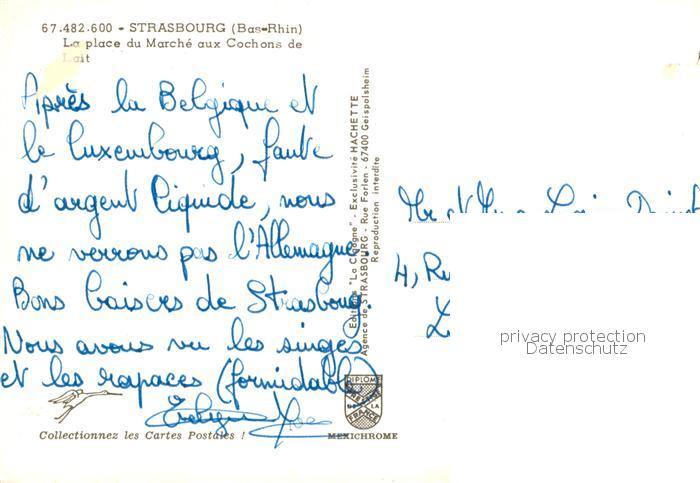 67.482.600 - STRASBOURG (Bas-Rhin)
La place du Marché aux Cochons de
Lait
Après la Belgique et
le Luxembourg, faute
d'argent liquide, nous
ne verrons pas l'Allemagne.
Bons baisers de Strasbourg.
Nous avons vu les singes
et les rapaces (formidable)
Collectionnez les Cartes Postales !
Editions "La Cigogne" - Exclusivité HACHETTE
Agence de STRASBOURG - Rue Forlen - 67400 Geispolsheim
Reproduction interdite
DIPLOME
PRESTIGE
DE LA
FRANCE
MEXICHROME
Mr et Mme
4, Ru
privacy protection
Datenschutz